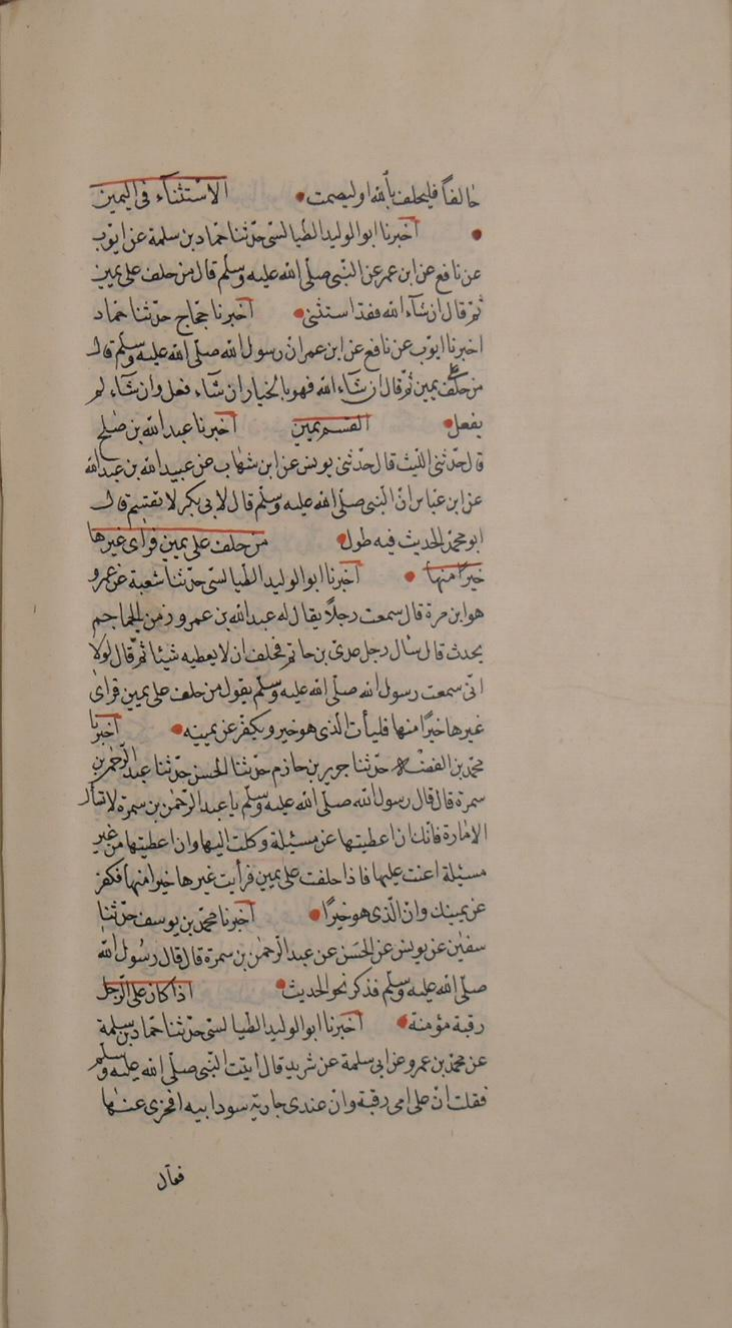 حالفاً فليحلف بالله اوليصمت الاستثناء فى اليمين
اخبرنا ابو الوليد الطيالسى حدثنا حماد بن سلمة عن ايوب
عن نافع عن ابن عمر عن النبى صلى الله عليه وسلم قال من حلف على يمين
ثم قال ان شاء الله فقد استثنى اخبرنا حجاج حدثنا حماد
اخبرنا ايوب عن نافع عن ابن عمر ان رسول الله صلى الله عليه وسلم قال
من حلف على يمين ثم قال ان شاء الله فهو بالخيار ان شاء فعل وان شاء لم
يفعل القسم يمين اخبرنا عبد الله بن صلح
قال حدثنى الليث قال حدثنى يونس عن ابن شهاب عن عبيد الله بن عبد الله
عن ابن عباس ان النبى صلى الله عليه وسلم قال لابى بكر لا تقسم قال
ابو محمد الحديث فيه طول من حلف على يمين فراى غيرها
خيرًا منها اخبرنا ابو الوليد الطيالسى حدثنا شعبة عن عمرو
هو ابن مرة قال سمعت رجلاً يقال له عبد الله بن عمرو زمن الجماجم
يحدث قال سال رجل عدى بن حاتم فحلف ان لا يعطيه شيئا ثم قال لولا
انى سمعت رسول الله صلى الله عليه وسلم يقول من حلف على يمين فراى
غيرها خيرًا منها فليأت الذى هو خير ويكفر عن يمينه اخبرنا
محمد بن الفضل حدثنا جرير بن حازم حدثنا الحسن حدثنا عبد الرحمن بن
سمرة قال قال رسول الله صلى الله عليه وسلم يا عبد الرحمن بن سمرة لا تسأل
الامارة فانك ان اعطيتها عن مسئلة وكلت اليها وان اعطيتها من غير
مسئلة اعنت عليها فاذا حلفت على يمين فرأيت غيرها خيرا منها فكفر
عن يمينك وات الذى هو خيرًا اخبرنا محمد بن يوسف حدثنا
سفين عن يونس عن الحسن عن عبد الرحمن بن سمرة قال قال رسول الله
صلى الله عليه وسلم فذكر نحو الحديث اذا كان على الرجل
رقبة مؤمنة اخبرنا ابو الوليد الطيالسى حدثنا حماد بن سلمة
عن محمد بن عمرو عن ابى سلمة عن شريد قال أتيت النبى صلى الله عليه وسلم
فقلت ان على امى رقبة وان عندى جارية سودا بيه افتجزى عنها
فقال